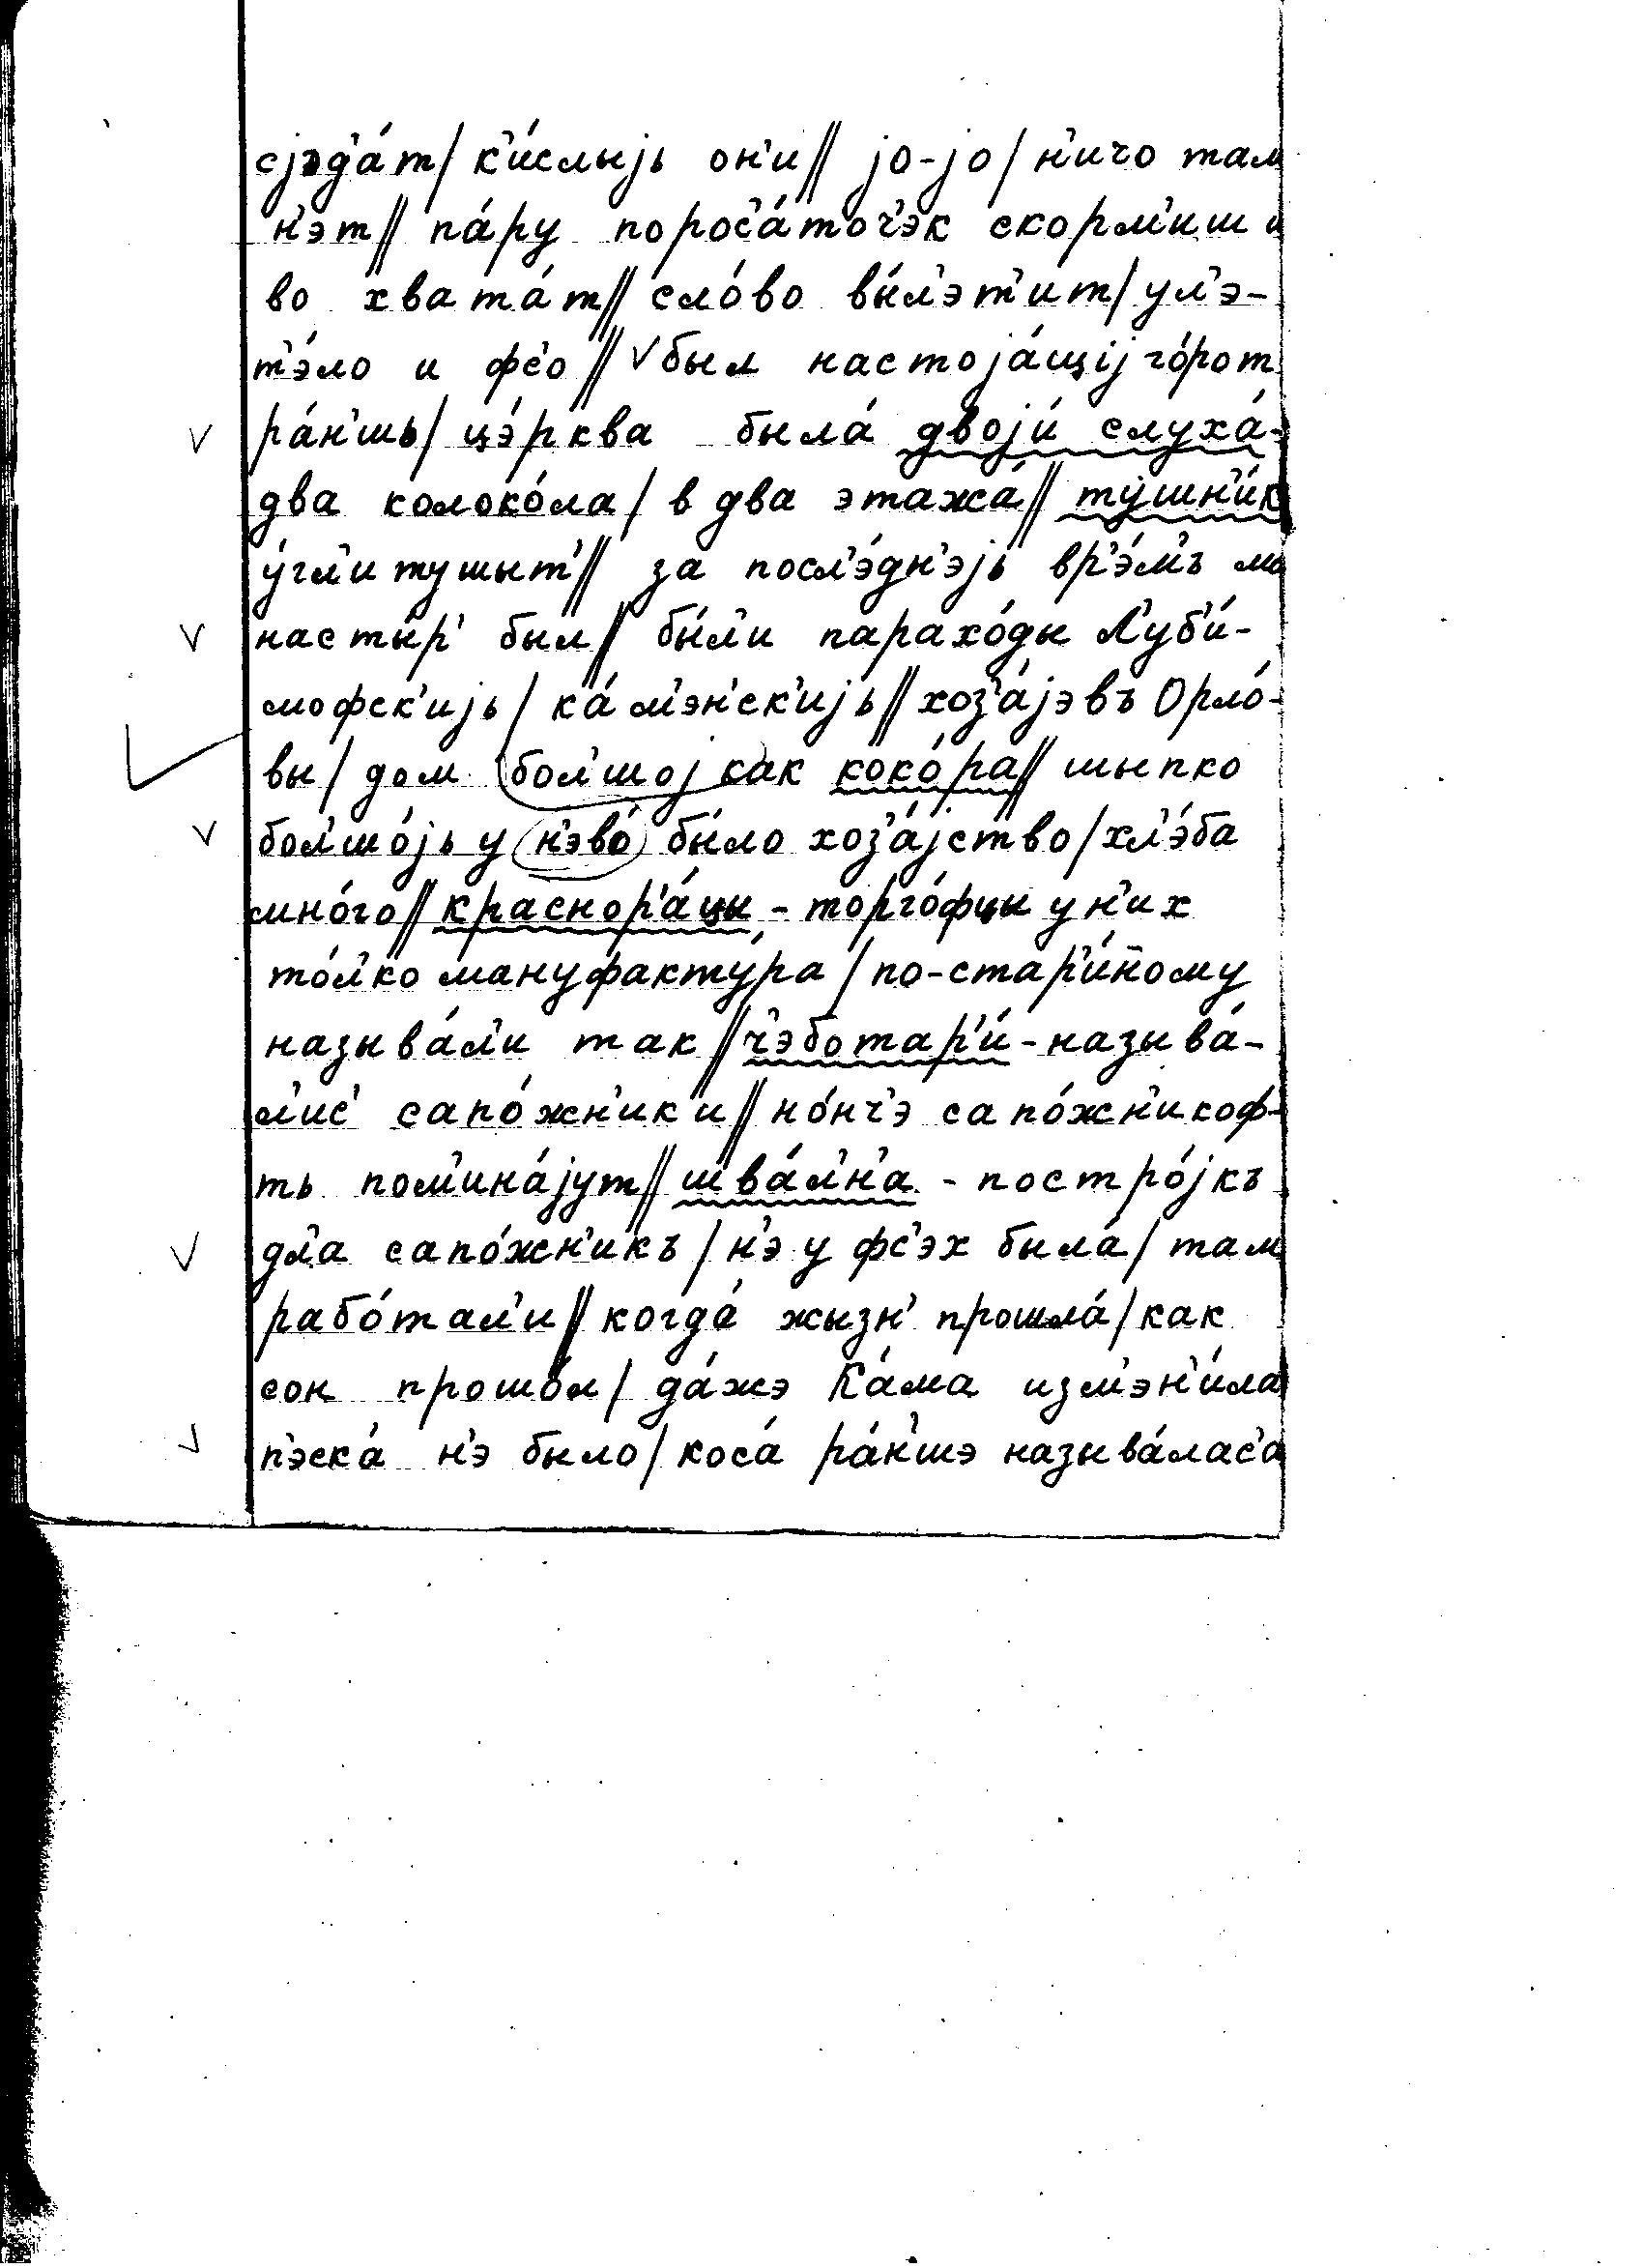 сjэд'а́т / к'и́слыjь он'и // jо-jо / н'ичо там
н'эт // па́ру порос'а́точ'эк скорм'иш и
во хвата́т // сло́во вы́л'эт'ит / ул'э-
т'э́ло и фс'о // был настоjа́щиj го́рот
ра́н'шь / цэ́рква была́ двоjи́ слуха́-
два колоко́ла / в два этажа́ // тушн'и́к
у́гл'и тушыт' // за посл'э́дн'эjь вр'э́м'ъ мо
насты́р' был // бы́л'и парахо́ды Л'уб'и́-
мофск'иjь / ка́м'энск'иjь // хоз'а́jэвъ Орло́-
вы / дом бол'шоj как коко́ра // шыпко
бол'шо́jь у н'эво́ бы́ло хоз'а́jство / хл'э́ба
мно́го // краснор'а́цы - торго́фцы у н'их
то́л'ко мануфакту́ра / по-стар'и́н̄ому
называ́л'и так // ч'эботар'и́ - называ́-
л'ис' сапо́жн'ик'и // но́нч'э сапо́жн'икоф-
ть пом'ина́jут // шва́л'н'а - постро́jкъ
дл'а сапо́жн'икъ / н'э у фс'эх была́ / там
рабо́тал'и // когда́ жызн' прошла́ / как
сон прошо́л / да́жэ Ка́ма изм'эн'и́ла
п'эска́ н'э было / коса́ ра́н'шэ называ́лас'а